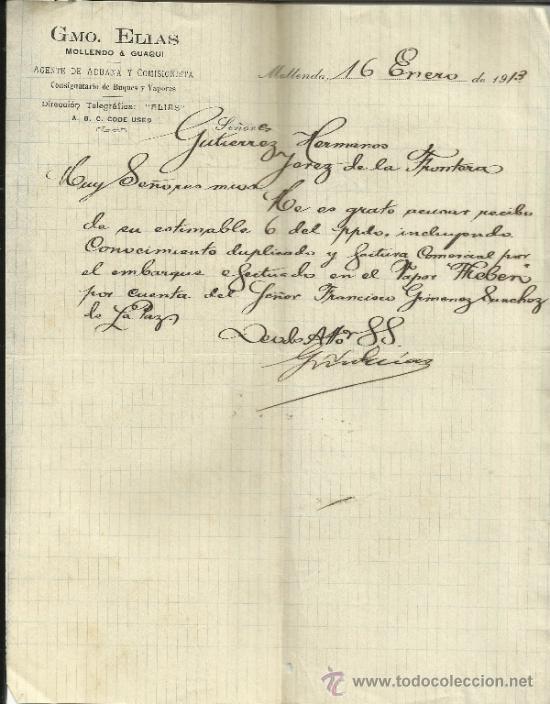 GMO. ELIAS
MOLLENDO & GUAQUI
AGENTE DE ADUANA Y COMISIONISTA
Consignatario de Buques y Vapores
Dirección Telegráfica: "ELIAS"
A. B. C. CODE USED
Mollendo, 16 Enero de 1913
Señores
Gutierrez Hermanos
Jerez de la Frontera
Muy Señores mios
Me es grato acusar recibo
de su estimable 6 del ppdo, incluyendo
Conocimiento duplicado y factura Comercial por
el embarque efectuado en el Vapor "Theben"
por cuenta del Señor Francisco Gimenez Sanchez
de La Paz
De Uds Atto SS
todocoleccion
www.todocoleccion.net